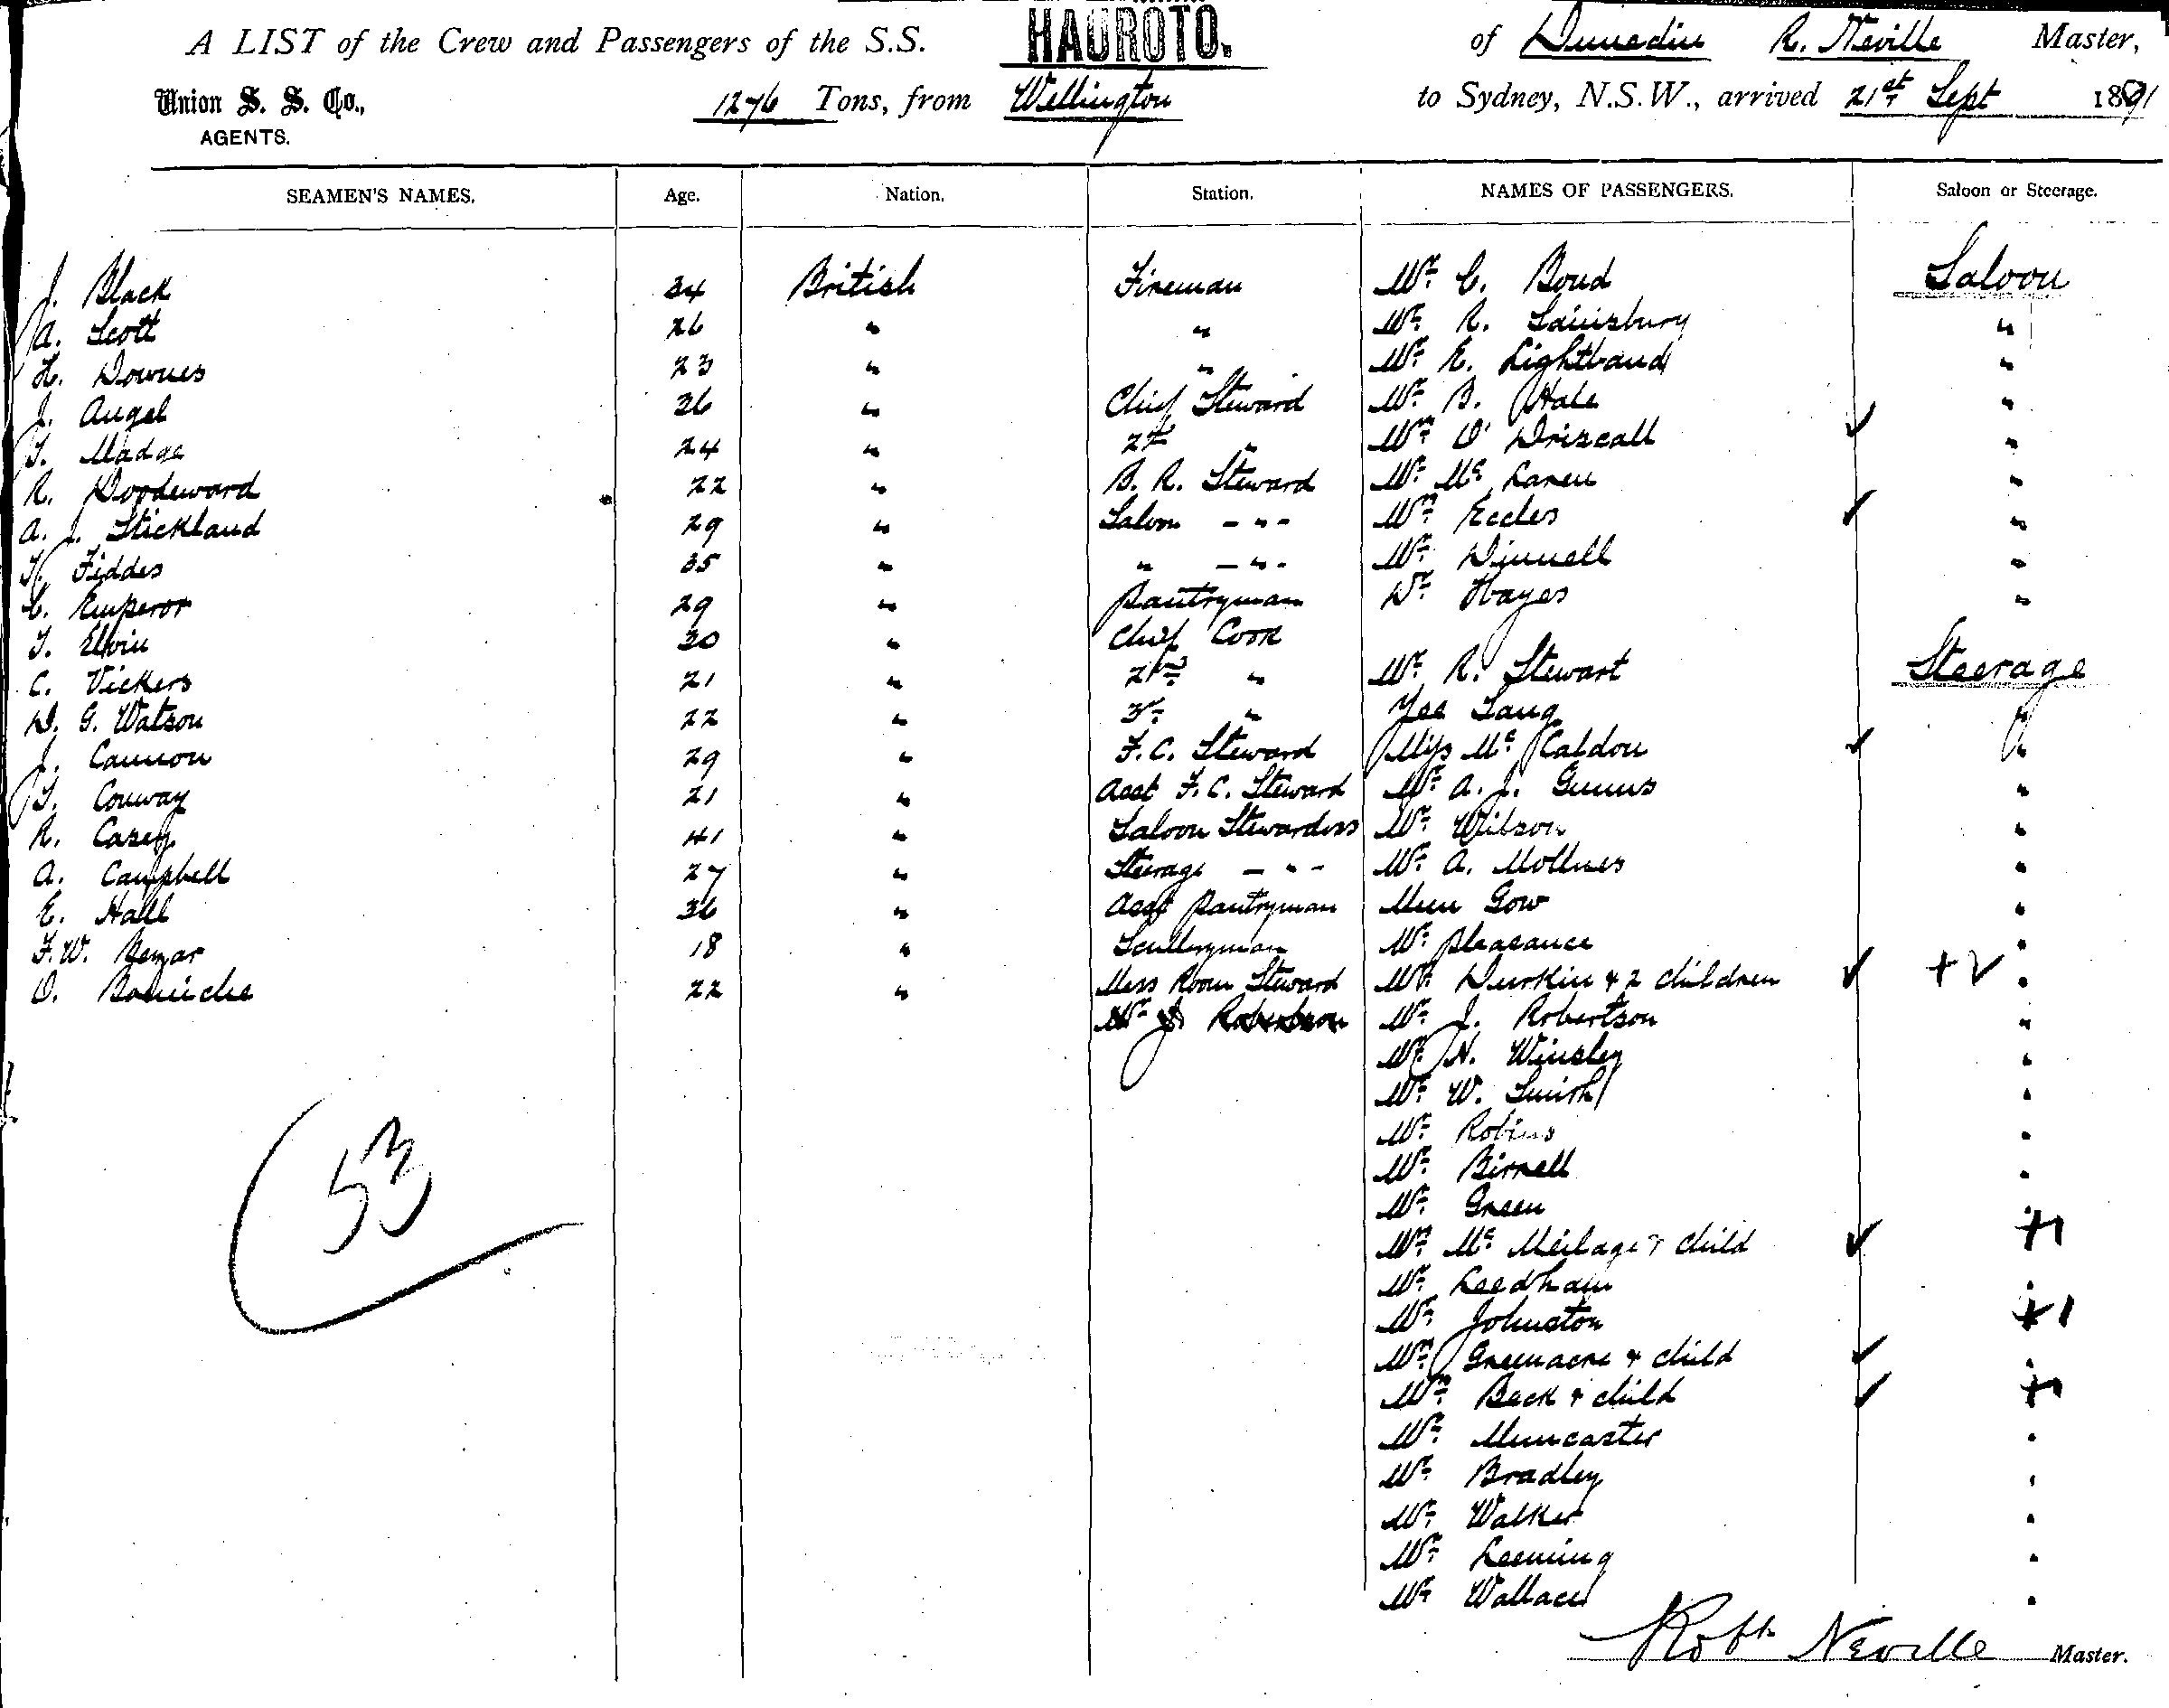 A LIST of the Crew and Passengers of the S.S. HAUROTO. of Dunedin R. Neville Master,
Union S. S. Co., 1276 Tons, from Wellington to Sydney, N.S.W., arrived 21st Sept 1891
AGENTS.
SEAMEN'S NAMES. Age. Nation. Station. NAMES OF PASSENGERS. Saloon or Steerage.
J. Black 34 British Fireman Mr C. Boud Saloon
A. Scott 26 " " Mr R. Sainsbury "
H. Downes 23 " " Mr E. Lightband "
J. Angel 36 " Chief Steward Mr B. Hale "
T. Madge 24 " 2nd " Mrs O' Driscall "
R. Woodeward 22 " B. R. Steward Mr Mc Laren "
A. J. Stickland 29 " Saloon - " - Mrs Eccles "
T. Fiddes 35 " " - " - Mr Dinnell "
C. Emperor 29 " Pantryman Dr Hayes "
T. Elvin 30 " Chief Cook
C. Vickers 21 " 2nd " Mr R. Stewart Steerage
D. G. Watson 22 " 3rd " Yee Tang "
J. Cannon 29 " F.C. Steward Miss Mc Caldon "
T. Conway 21 " Asst F.C. Steward Mr A. J. Gunns "
R. Casey 41 " Saloon Stewardess Mr Wilson "
A. Campbell 27 " Steerage - " - Mr A. Mollnes "
E. Hall 36 " Asst Pantryman Mun Gow "
F.W. 18 " Scullryman Mr Pleasance "
O. 22 " Mess Room Steward Mrs Durkin & 2 children + 2 "
Mr J. Robertson Mr J. Robertson "
Mr H. Winsley "
Mr W. Smith "
Mr Robins "
Mr Birrell "
Mr Green "
Mrs Mc & child +1
Mr Leedham "
Mr Johnston +1
Mrs Greenacre & child "
Mrs Beck & child +1
Mr Muncaster "
Mr Bradley "
Mr Walker "
Mr Leeming "
Mr Wallace "
53
Robt Neville Master.